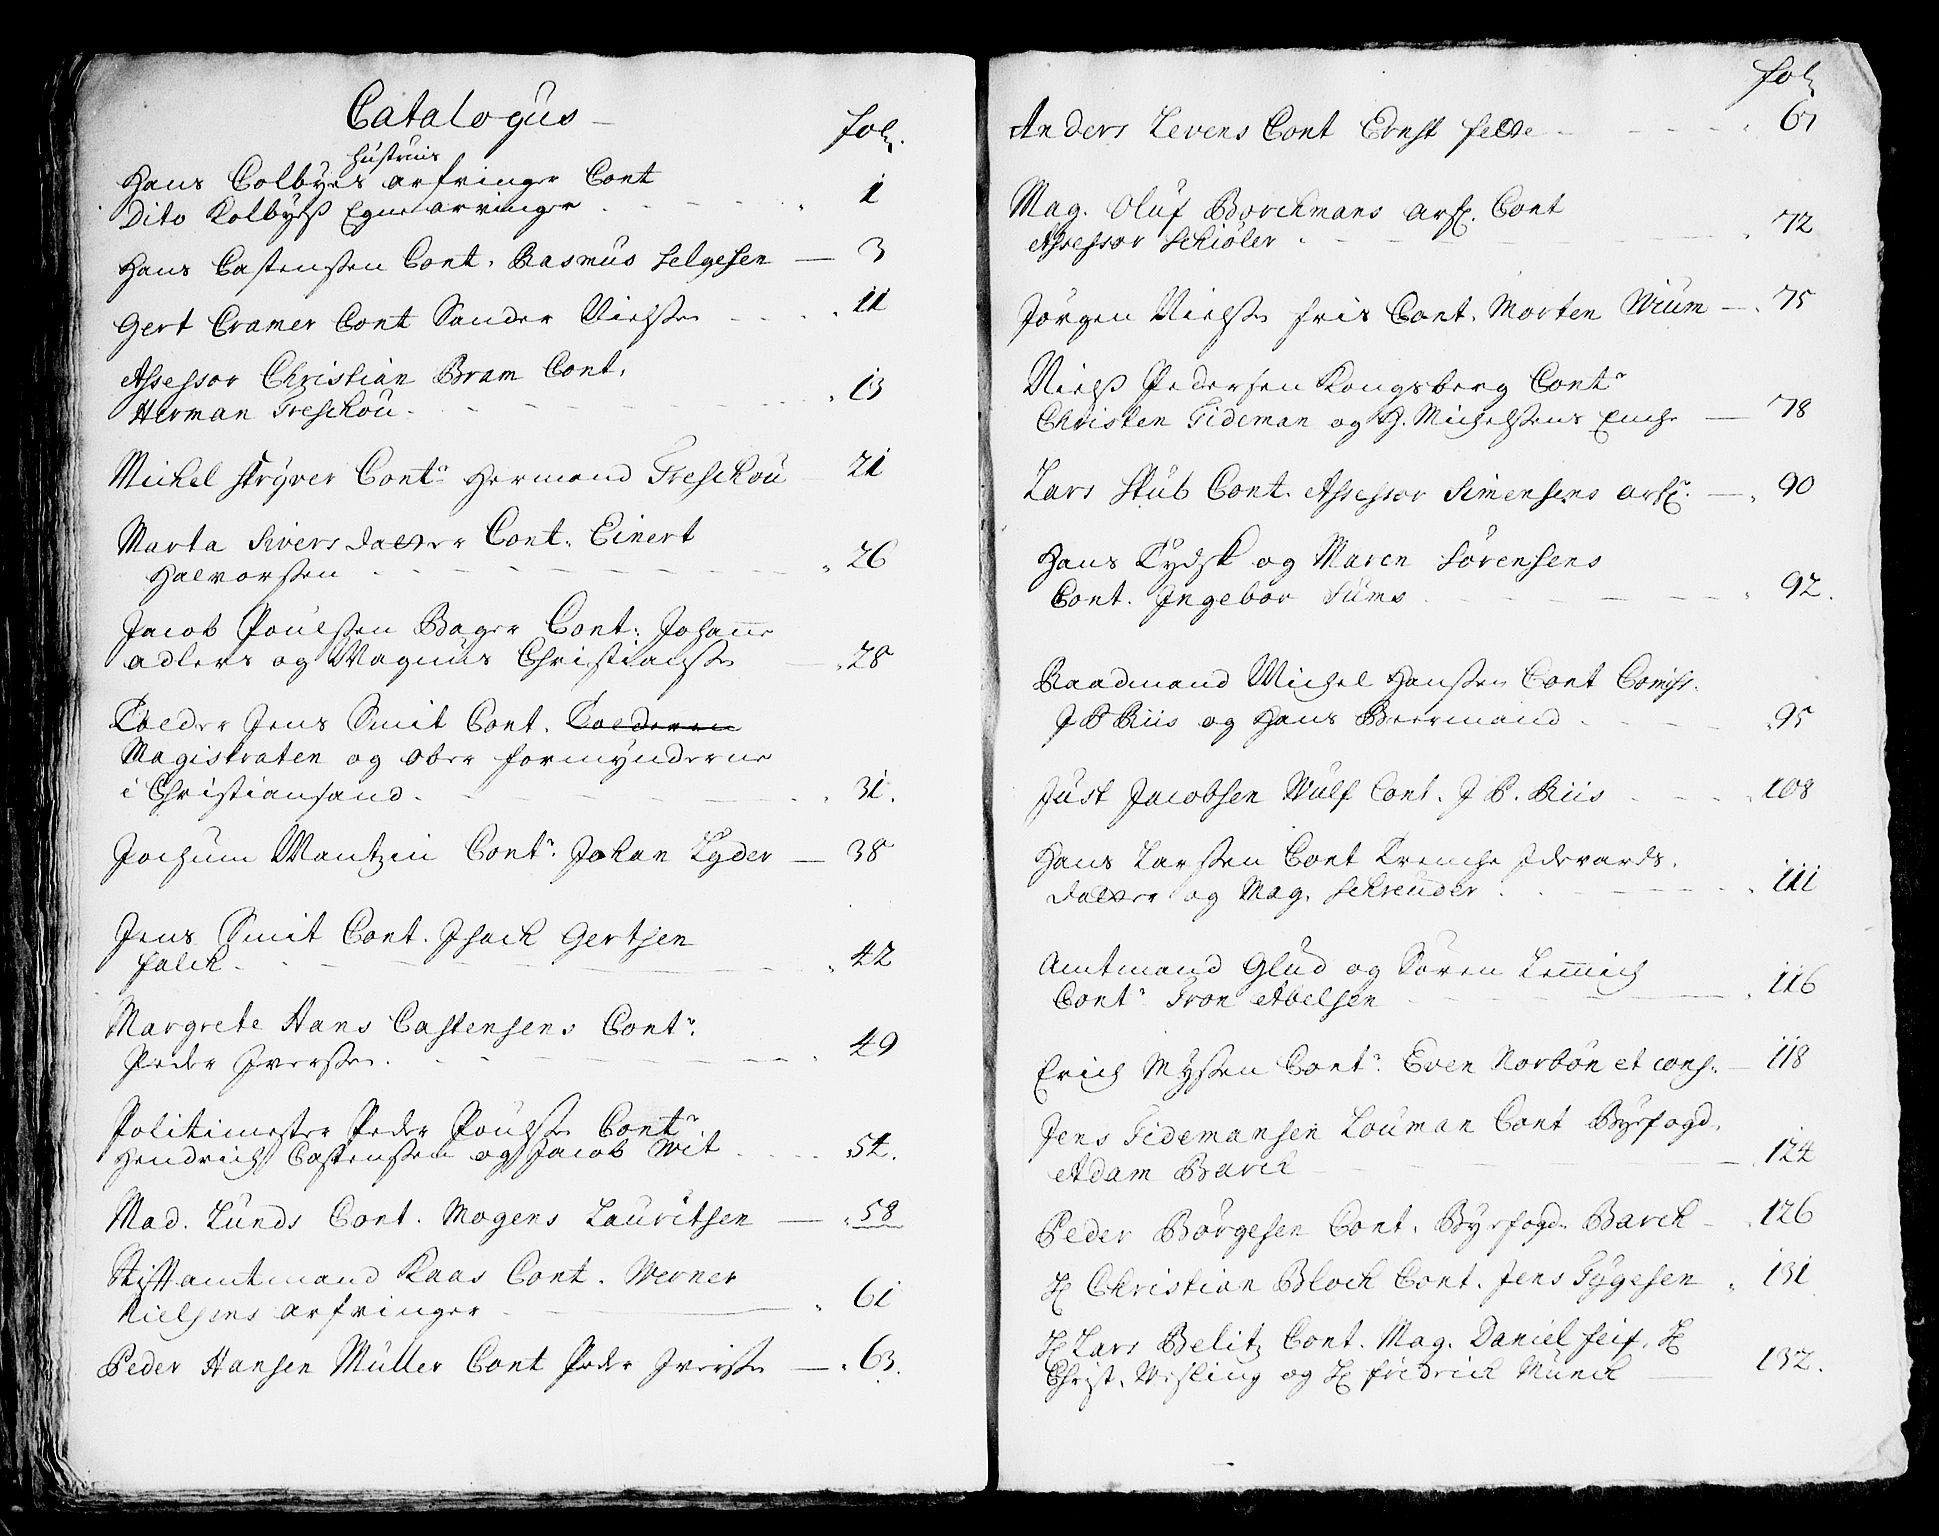 Catalogus
fol.
Hustruis
Hans Colbyes arfvinger Cont
Dito Kolbyes Egne arvinger 1
Hans Castensen Cont. Rasmus Helgesen 3
Gert Cramer Cont Sander Nielsen 11
Assessor Christian Bram Cont.
Herman Treschou 13
Michel Skryver Contr Hermand Treschou 21
Marta Sivers daatter Cont. Einert
Halvorsen 26
Jacob Poulsen Bager Cont. Johanne
adlers og Magnus Christianse 28
Tolder Jens Smit Cont. Tolderen
Magistraten og ober formynderne
i Christiansand 31.
Jochum Mantzin Contr. Johan Lyder 38
Jens Smit Cont. Isach Gertsen
falck 42
Margrete Hans Castensens Contr.
Peder Iversen 49
Politimester Peder Poulse Contr
Hendrich Castensen og Jacob Wit 54.
Mad. Lunds Cont. Mogens Lauritsen 58
Stiftamtmand Kaas Cont. Werner
Nielsens arfvinger 61
Peder Hansen Müller Cont Peder Iverse 63.
fol
Anders Levens Cont Ernst felde 67
Mag. Oluf Borchmans arf. Cont
Assessor Schiøler 72
Jörgen Nielsen friis Cont. Morten Wium 75
Niels Pedersen Kongsberg Contr
Christen Tideman og H. Michelsens Enche 78
Lars Stub Cont. Assessor Simensens arf. 90
Hans Tydsk og Maren Sörensens
Cont. Ingebor Sums 92.
Raadmand Michel Hansen Cont Comiss.
J P Riis og Hans Beermand 95
Just Jacobsen Wulf Cont. J P. Riis 108
Hans Larsen Cont Trenche Idevards.
daatter og Mag. Schreuder 111
Amtmand Glud og Sören Lemmich
Contr Tron Abelsen 116
Erich Mysen Contr. Even Norbön et cons. 118
Jens Tidemansen Louman Cont Byefogd.
Adam Barck 124
Peder Börgesen Cont. Byefogd. Barck 126
H Christian Bloch Cont. Jens Tygesen 131
H Lars Belitz Cont. Mag. Daniel feif, H
Christ. Wisling og H fridrich Munck 132.